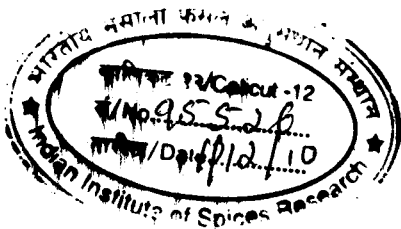 भारतीय मसाला फसल अनुसंधान संस्थान
कालिकट १२/Calicut-12
सं/No.
तारीख/Date
Indian Institute of Spices Research